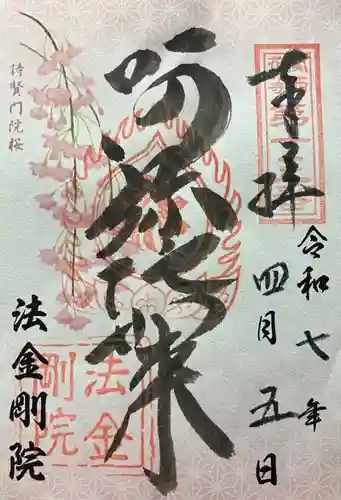 奉拝
令和七年
四月五日
阿弥陀如来
法金剛院
待賢門院桜
法金
剛院